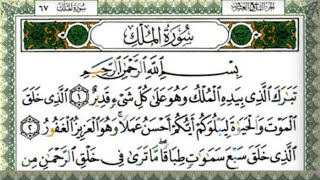 الجزء التاسع والعشرون ٦٧ سورة الملك
سُورَةُ المُلْكِ
بِسْمِ اللهِ الرَّحْمٰنِ الرَّحِيْمِ
تَبَارَكَ الَّذِي بِيَدِهِ الْمُلْكُ وَهُوَ عَلَى كُلِّ شَيْءٍ قَدِيرٌ ۝١ الَّذِي خَلَقَ
الْمَوْتَ وَالْحَيَاةَ لِيَبْلُوَكُمْ أَيُّكُمْ أَحْسَنُ عَمَلًا وَهُوَ الْعَزِيزُ الْغَفُورُ ۝٢
الَّذِي خَلَقَ سَبْعَ سَمٰوٰتٍ طِبَاقًا مَّا تَرَىٰ فِي خَلْقِ الرَّحْمٰنِ مِن